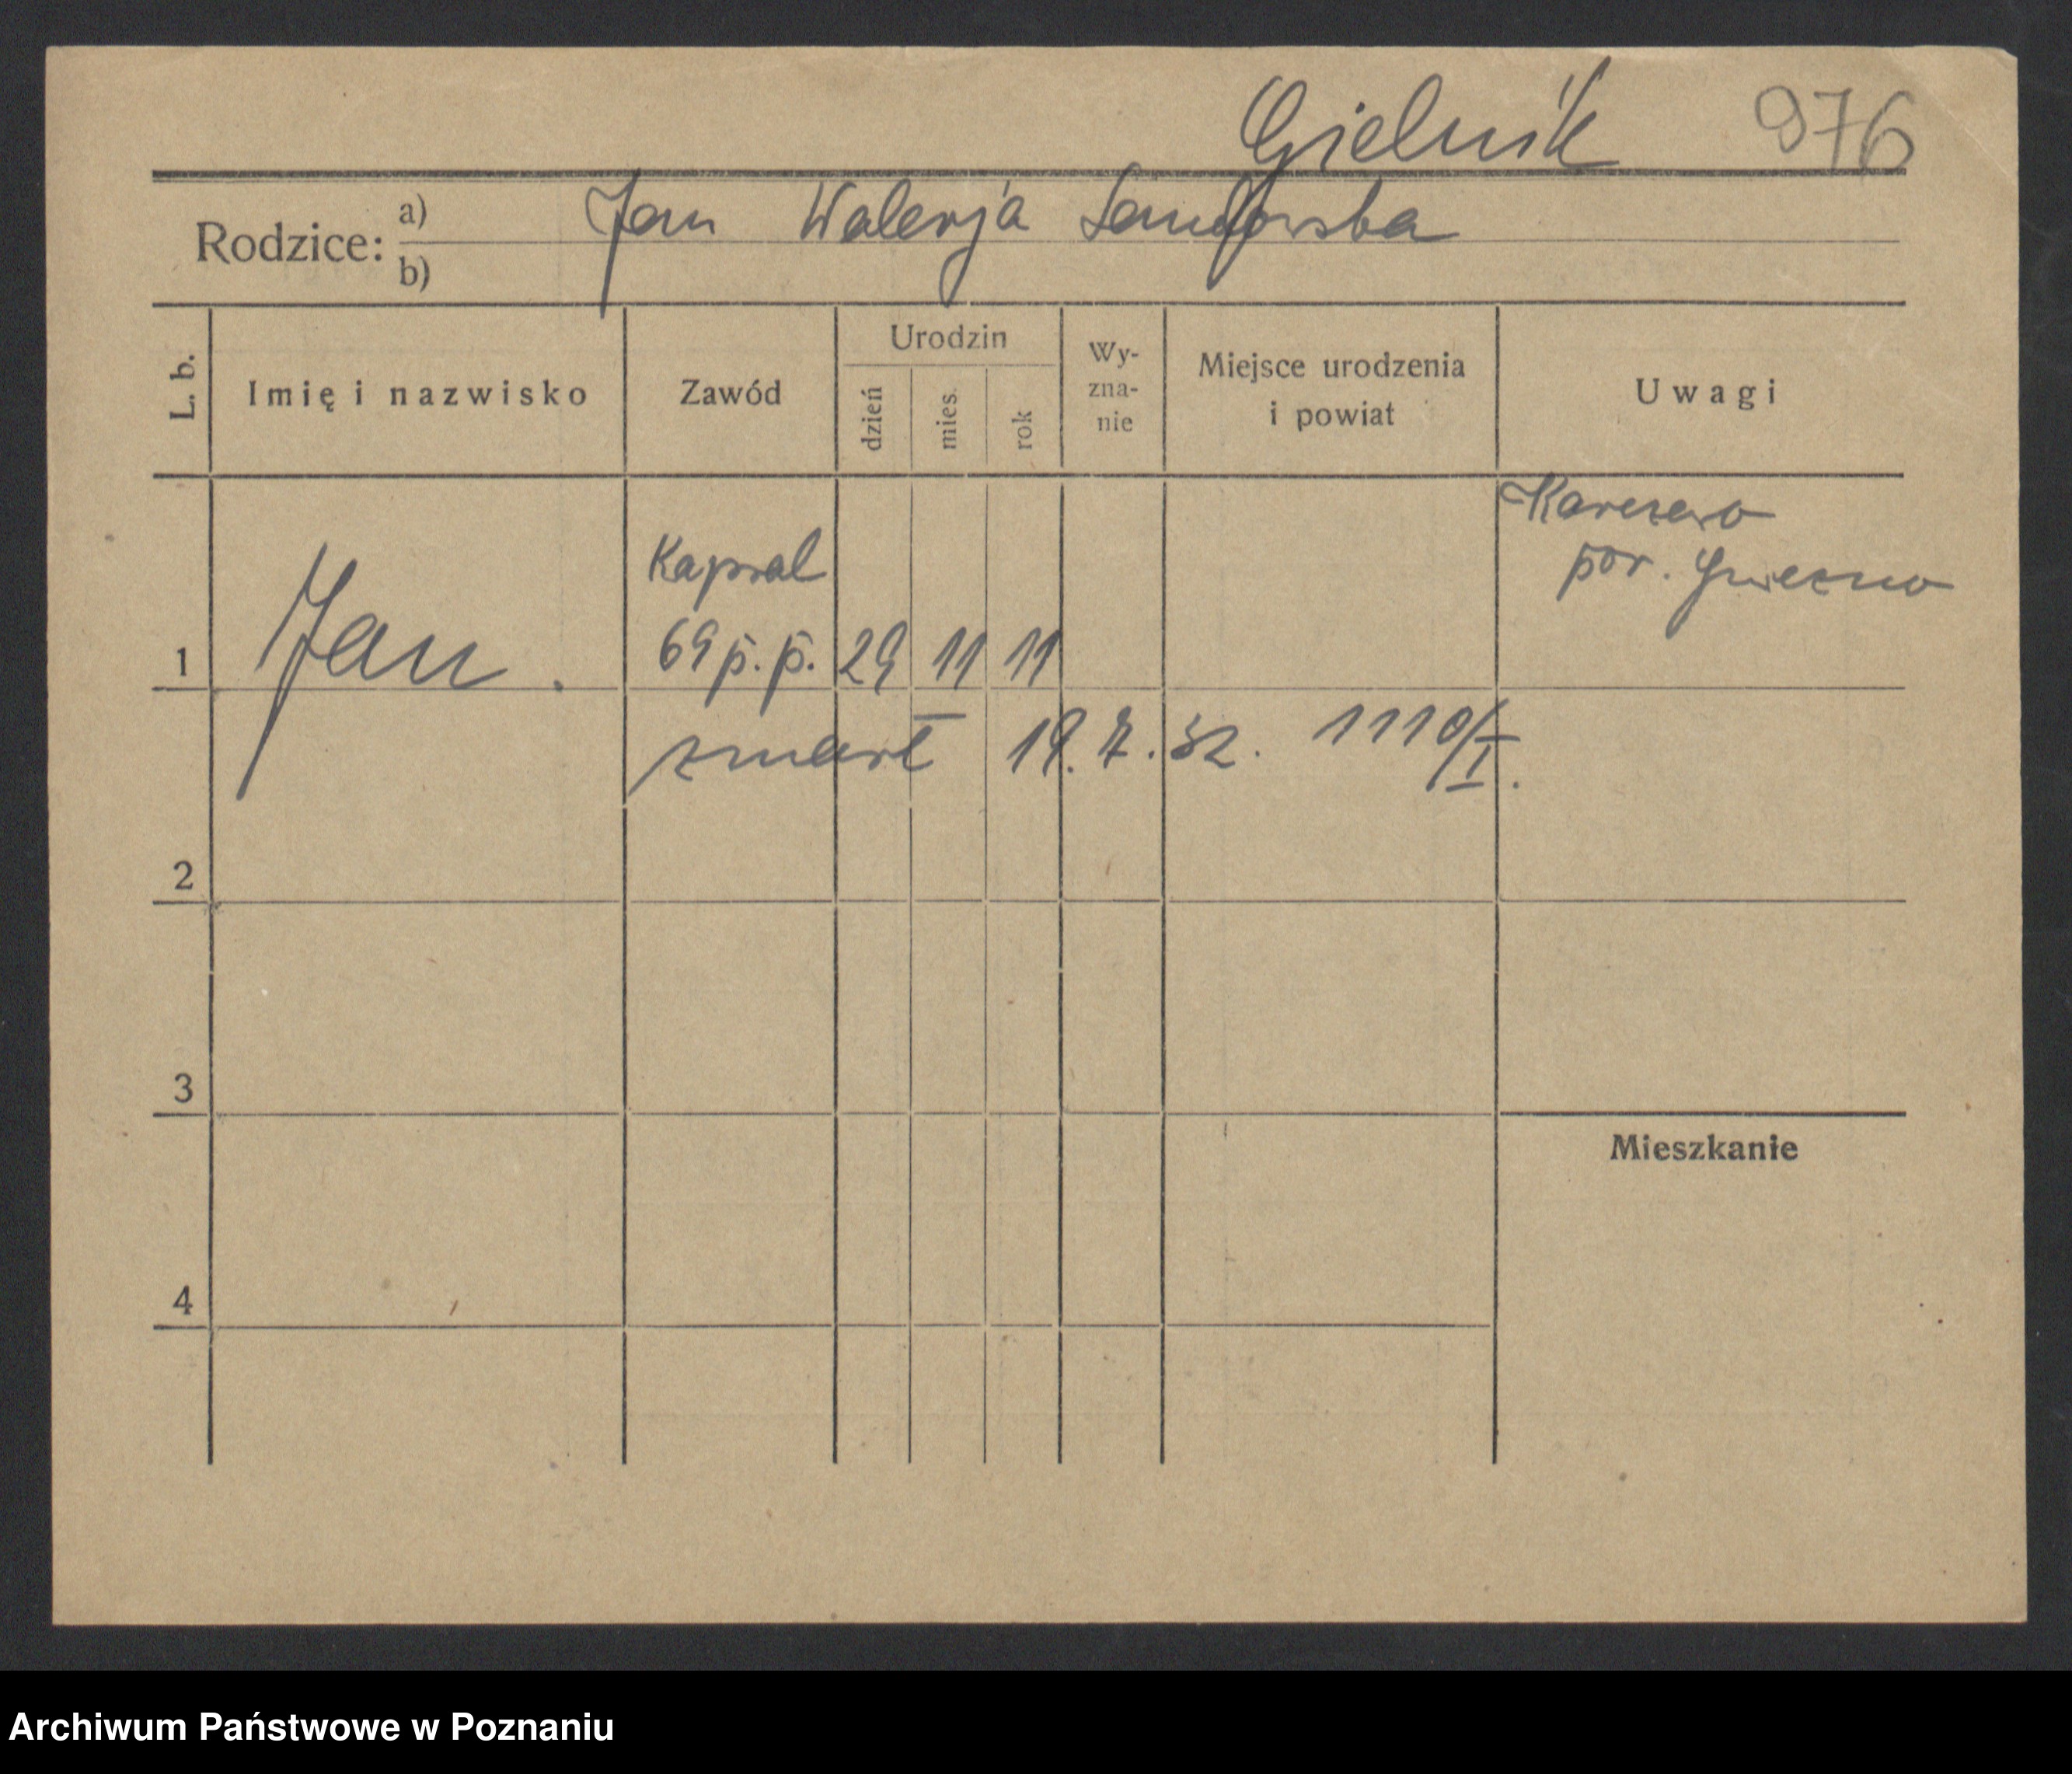 Gielnik 976
Rodzice: a) Jan Walerja
b)
L. b.
Imię i nazwisko
Zawód
Urodzin
dzień
mies.
rok
Wy-
zna-
nie
Miejsce urodzenia
i powiat
Uwagi
Karczewo
pow. Gniezno
Kapral
1 Jan. 69 p. p. 29 11 11
zmarł 19. 7. 32. 1110/I.
2
3
Mieszkanie
4
Archiwum Państwowe w Poznaniu